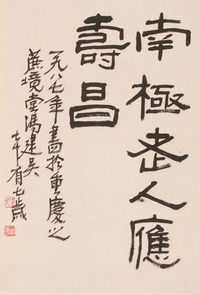 南極老人應
壽昌
一九八七年書於重慶之
蔗境堂馮建吳
七十有七歲